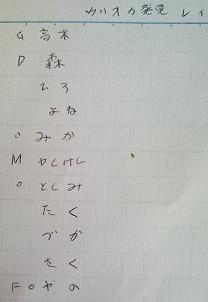 ウリオカ発見 レイ
G 高木
D 森
ひろ
よね
o みか
M やしけし
o としみ
たく
づか
さく
F o やの